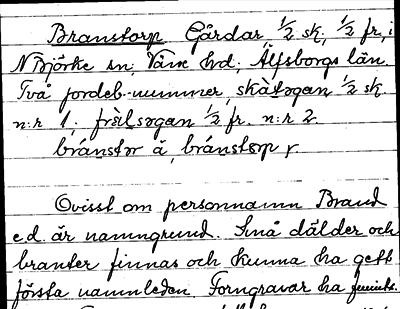 Branstorp. Gårdar, 1/2 sk, 1/2 fr, i
N Björke sn, Väne hd, Älfsborgs län.
Två jordeb.-nummer, skàtəgan 1/2 sk
n:r 1, frälsəgan 1/2 fr. n:r 2.
bránstər å, bránstorp r.
Ovisst om personnamn Brand
e.d. är namngrund. Små dälder och
branter finnas och kunna ha gett
första namnleden. Forngravar ha funnits.